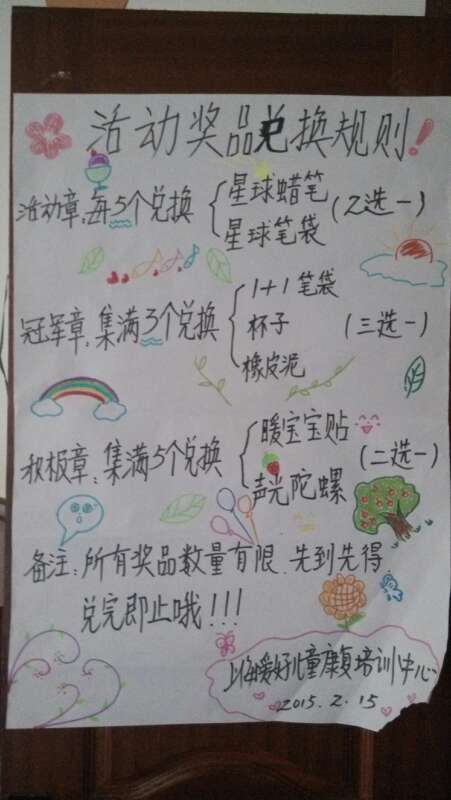 活动奖品兑换规则!
活动章:每5个兑换 星球蜡笔 星球笔袋 (2选一)
冠军章:集满3个兑换 1+1笔袋 杯子 橡皮泥 (三选一)
积极章:集满5个兑换 暖宝宝贴 声光陀螺 (二选一)
备注:所有奖品数量有限.先到先得
兑完即止哦!!!
上海暖好儿童康复培训中心
2015.2.15